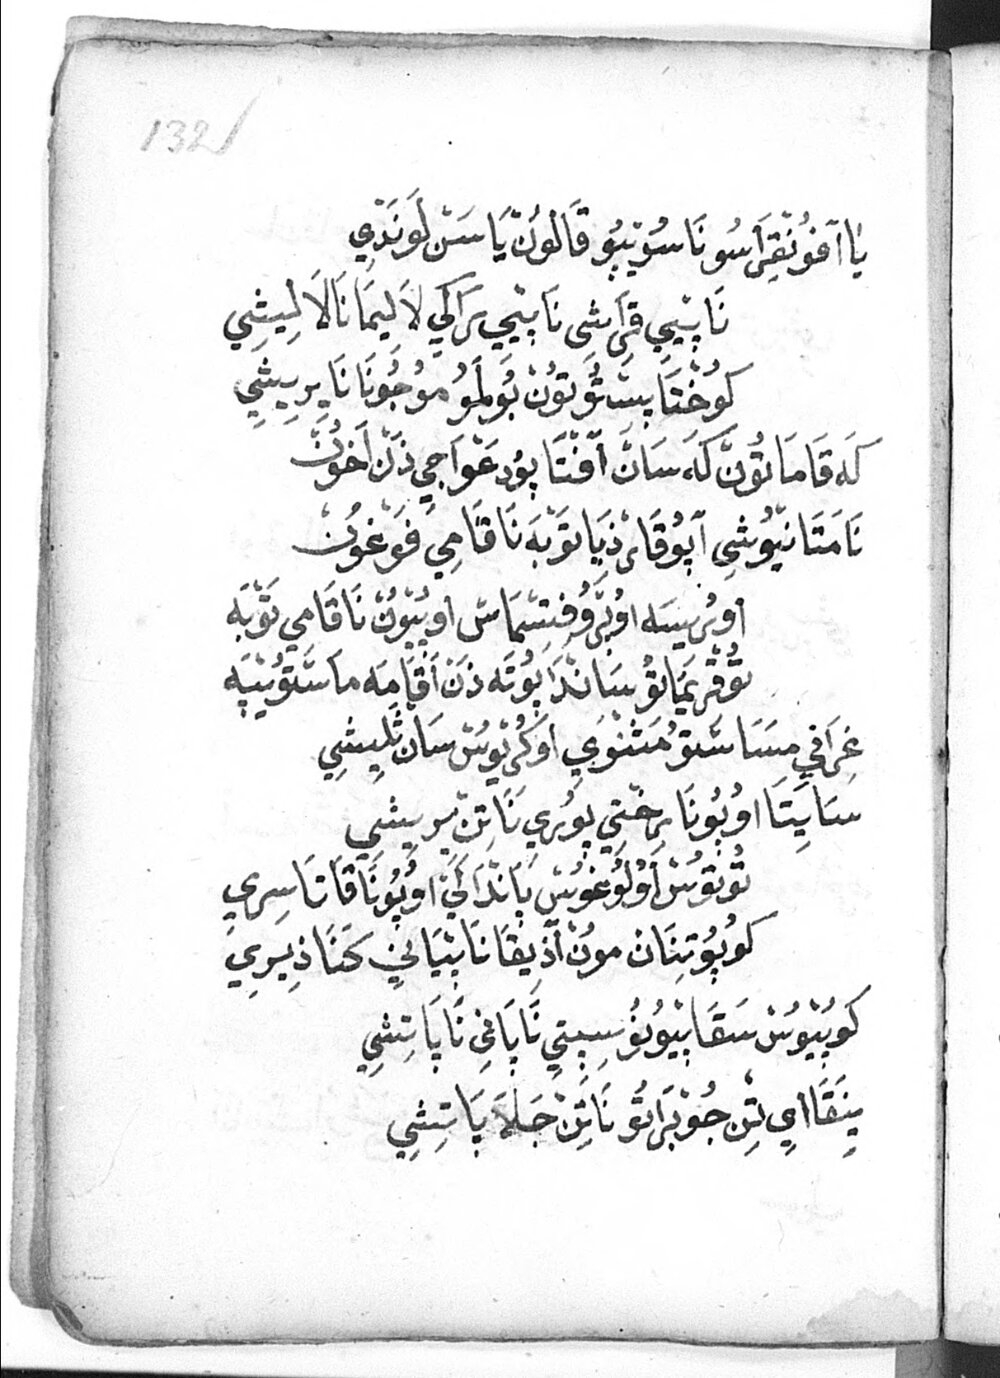 132
يَا آفوُنُقِرَاسُو نَا سُويْپُو قَالُونْ يَا سَنْ لَوَنَدِي
نَاپِيْي قِرَاشِي نَاپِيْي رَاكِي لَا لِيمَا نَالَا لِيشِي
كُوخْتَا پِسْتُوتُونْ بُولَمُو مُوجُونَا نَايِرِيشِي
كَه قَامَاتُونْ كَه سَانْ آفْتَا پُودَغْوَاجِي ذَنْ آخُونْ
نَا مَتَانِيُوشِي آپُوقَارْذِيَا تَوْبَه نَا قَامِي فَوْغُونْ
اوُرِيسَه اوُبْرُوفِتِسْمَاسْ اوُيْيُونْ نَا قَامِي تَوْبَه
تُوقْرِيمَاتُو سَانْدَا پُوتَه ذَنْ آقَامَه مَاسْتُويْپَه
غِرَافِي مَسَاسْتُو مَثْنَوِي اوُكُرْيُوسْ سَانْ ثَلِيشِي
سَايِتَا اوُپُونَا رِخْتِي پُورِي نَاتِنْ يِرِيشِي
تُوتُوسْ اوُلُوغُوسْ پَانْدَاكِي اوُپُونَاقَاتَاسِرِي
كُوپُوتِنَانْ مُونْ آذِيقَا نَاپْيَانِي كَنَا ذِيرِي
كُوپْيُوسْ سَقَاپْيُونُوسِپِتِي نَاپَاغِي نَاپَاتِشِي
يِنَقَا اِي تِنْ جُوبْرَاتُو نَاتِنْ جَلَا پَاتِشِي